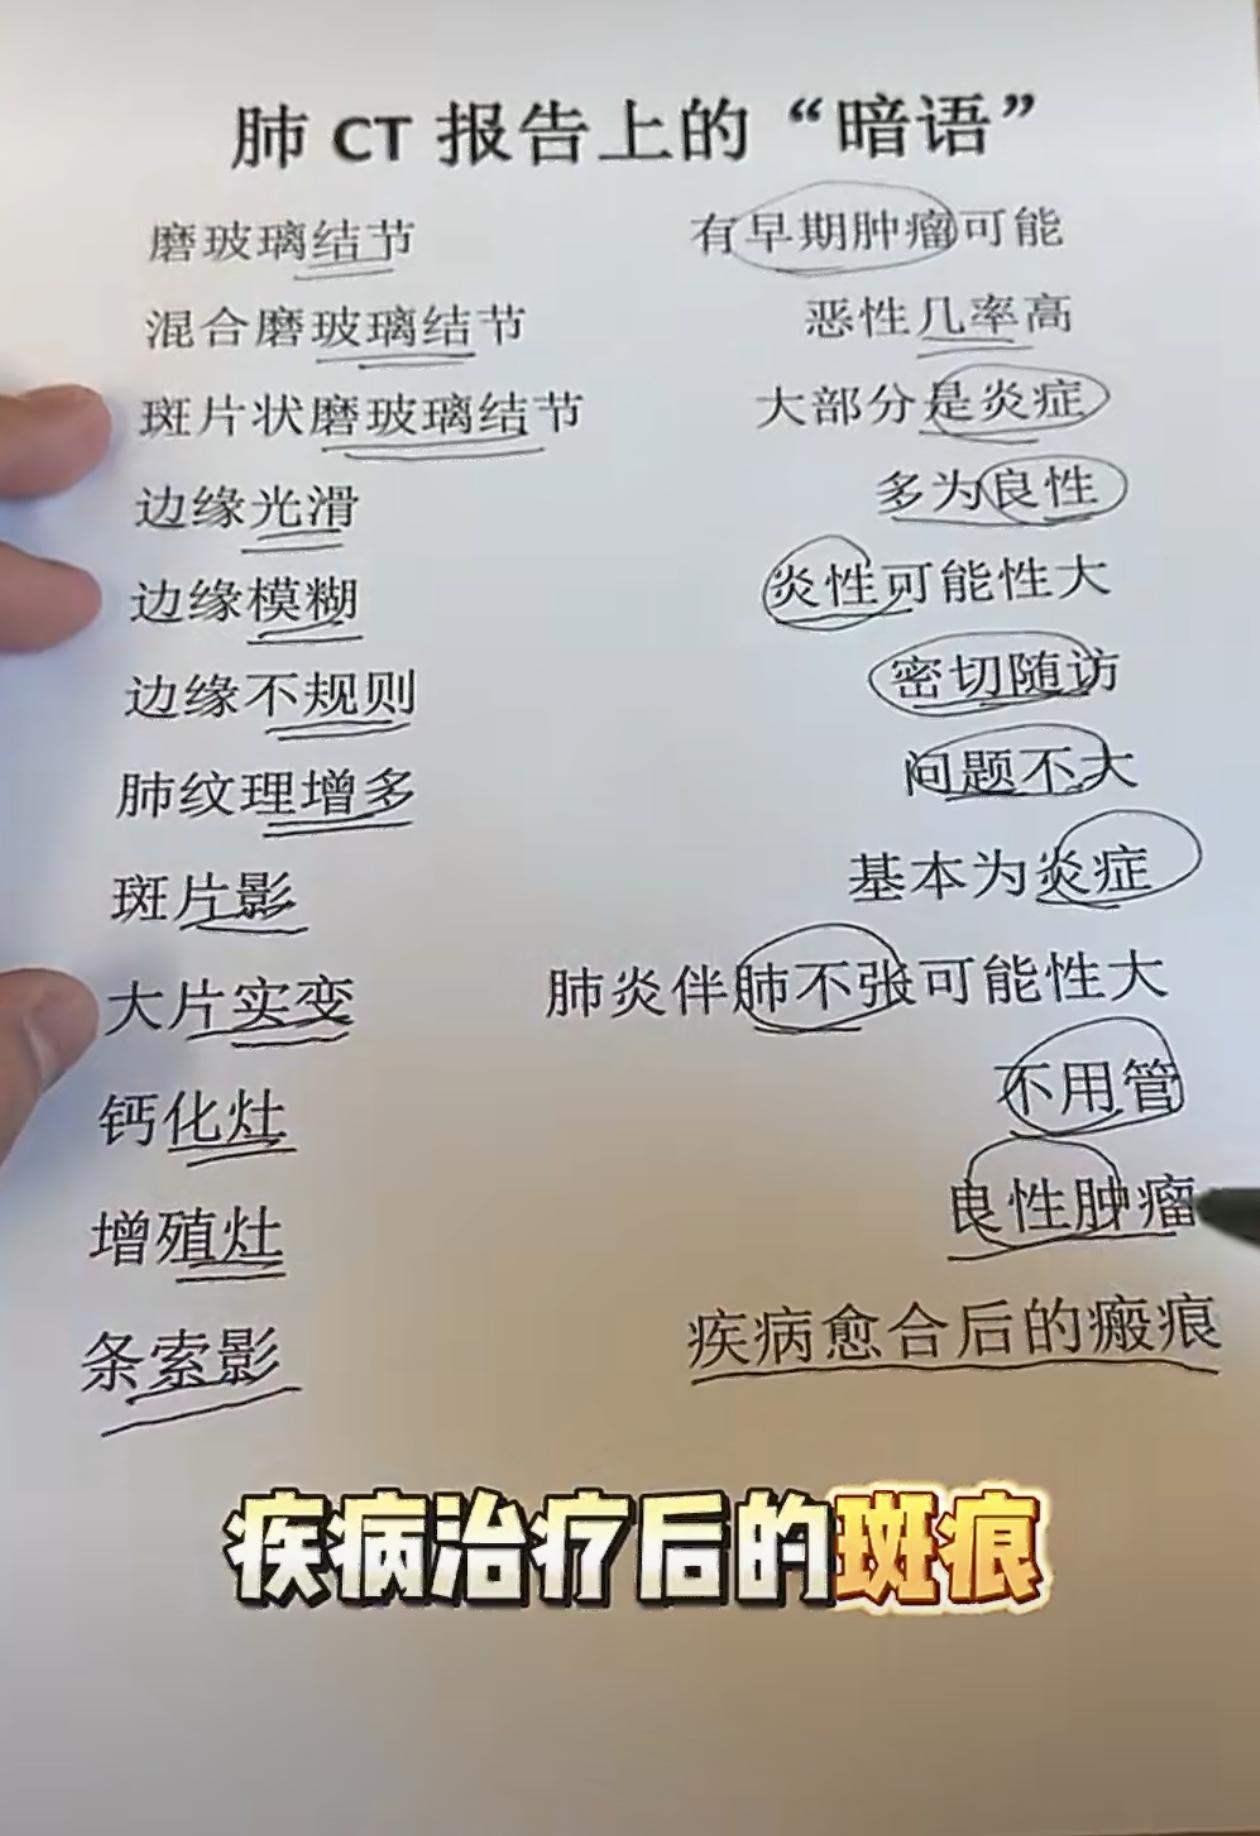 肺 CT 报告上的“暗语”
磨玻璃结节 有早期肿瘤可能
混合磨玻璃结节 恶性几率高
斑片状磨玻璃结节 大部分是炎症
边缘光滑 多为良性
边缘模糊 炎性可能性大
边缘不规则 密切随访
肺纹理增多 问题不大
斑片影 基本为炎症
大片实变 肺炎伴肺不张可能性大
钙化灶 不用管
增殖灶 良性肿瘤
条索影 疾病愈合后的瘢痕
疾病治疗后的斑痕